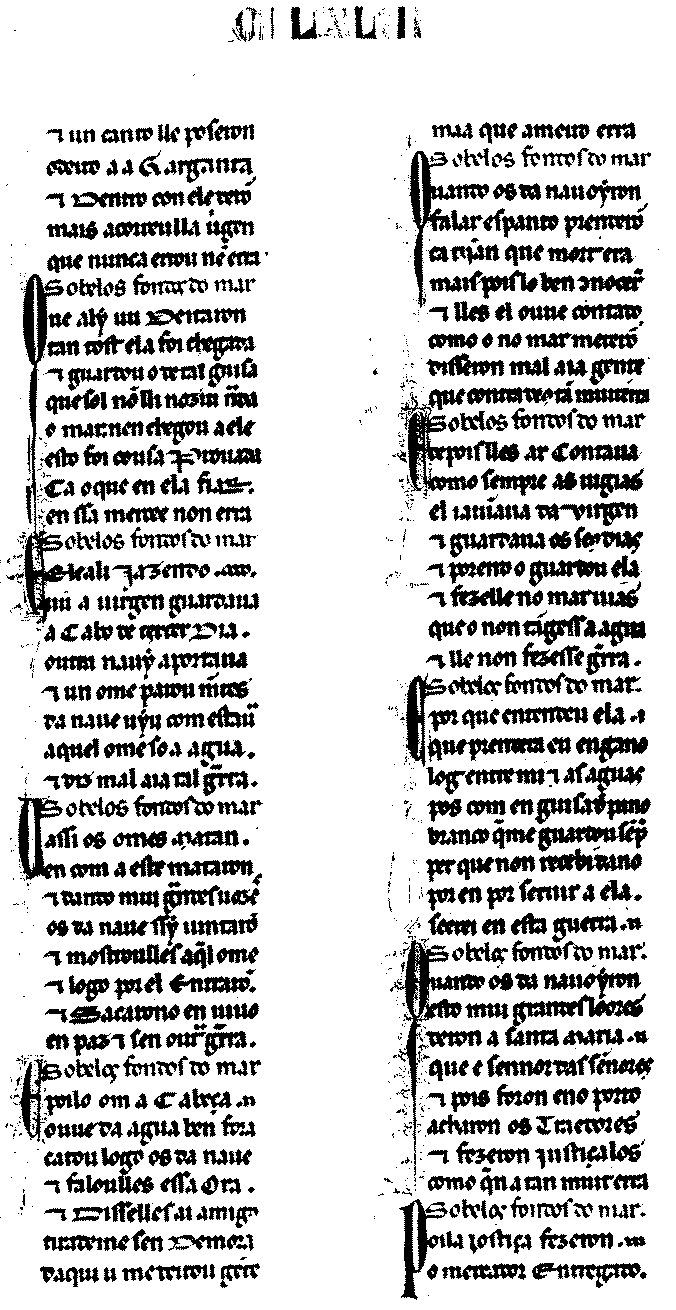 ⁊ un canto lle poseron
deuo a a Garganta
⁊ Dentro con ele
mais acorreulla uirgen
que nunca errou nẽ erra
Sobelos fondos do mar
Que alý uu Deitaron
tan tost ela foi chegada
⁊ guardou o de tal guisa
que sol nõ lli noziu nada
o mar nen chegou a ele
esto foi cousa Prouada
Ca o que en ela fia
en ssa mercee non erra
Sobelos fondos do mar
El ali jazendo
uu a uirgen guardaua
a Cabo de tercer Dia .
outra nauý aportaua
⁊ un ome parou mẽtes
da naue uýu com estaũ
aquel ome so a agua .
⁊ diz mal aia tal gẽrra .
Sobelos fondos do mar
assi os omes matan .
en com a este mataron
⁊ tanto mui
os da naue
⁊ mostroulles aql ome
⁊ logo por el Entrarõ .
⁊ Sacarono en uiuo
en paz ⁊ sen outͬ gẽrra .
Sobelos fondos do mar
poilo om a Cabeça
ouue da agua ben fora
catou logo os da naue
⁊ faloulles essa Ora .
⁊ Disselles ai amigos
tirademe sen Demora
daqui u me deitou gẽte
maa que ameud erra
Sobelos fondos do mar
Quando os da nauoýron
falar espanto prenderõ
ca cuidan que mort era
mais pois lo ben
⁊ lles el ouue contado
como o no mar meterõ
disseron mal aia gente
que contra
Sobelos fondos do mar
depois lles ar Contaua
como sempre as uigias
el iauiaua da uirgen
⁊ guardaua os seus dias
⁊ porend o guardou ela
⁊ fezelle no mar uias
que o non tãgess a agua
⁊ lle non fezesse gẽrra .
Sobelos fondos do mar.
por que entendeu ela
que prendera eu engano
log entre mi ⁊ as aguas
pos com en guisa d pano
branco q̃ me guardou sẽp
per que non recebi dano
por en por seruir a ela .
seerei en esta guerra
Sobelos fondos do mar.
Quando os da nauoýron
esto mui grandes lóores
deron a santa maria
que é sennor das sẽnores
⁊ pois foron eno porto
acharon os Traedores
⁊ fezeron justiçalos
como q̃n a tan muit erra
Sobelos fondos do mar.
Poila jostiça fezeron
o mercador Entregado.